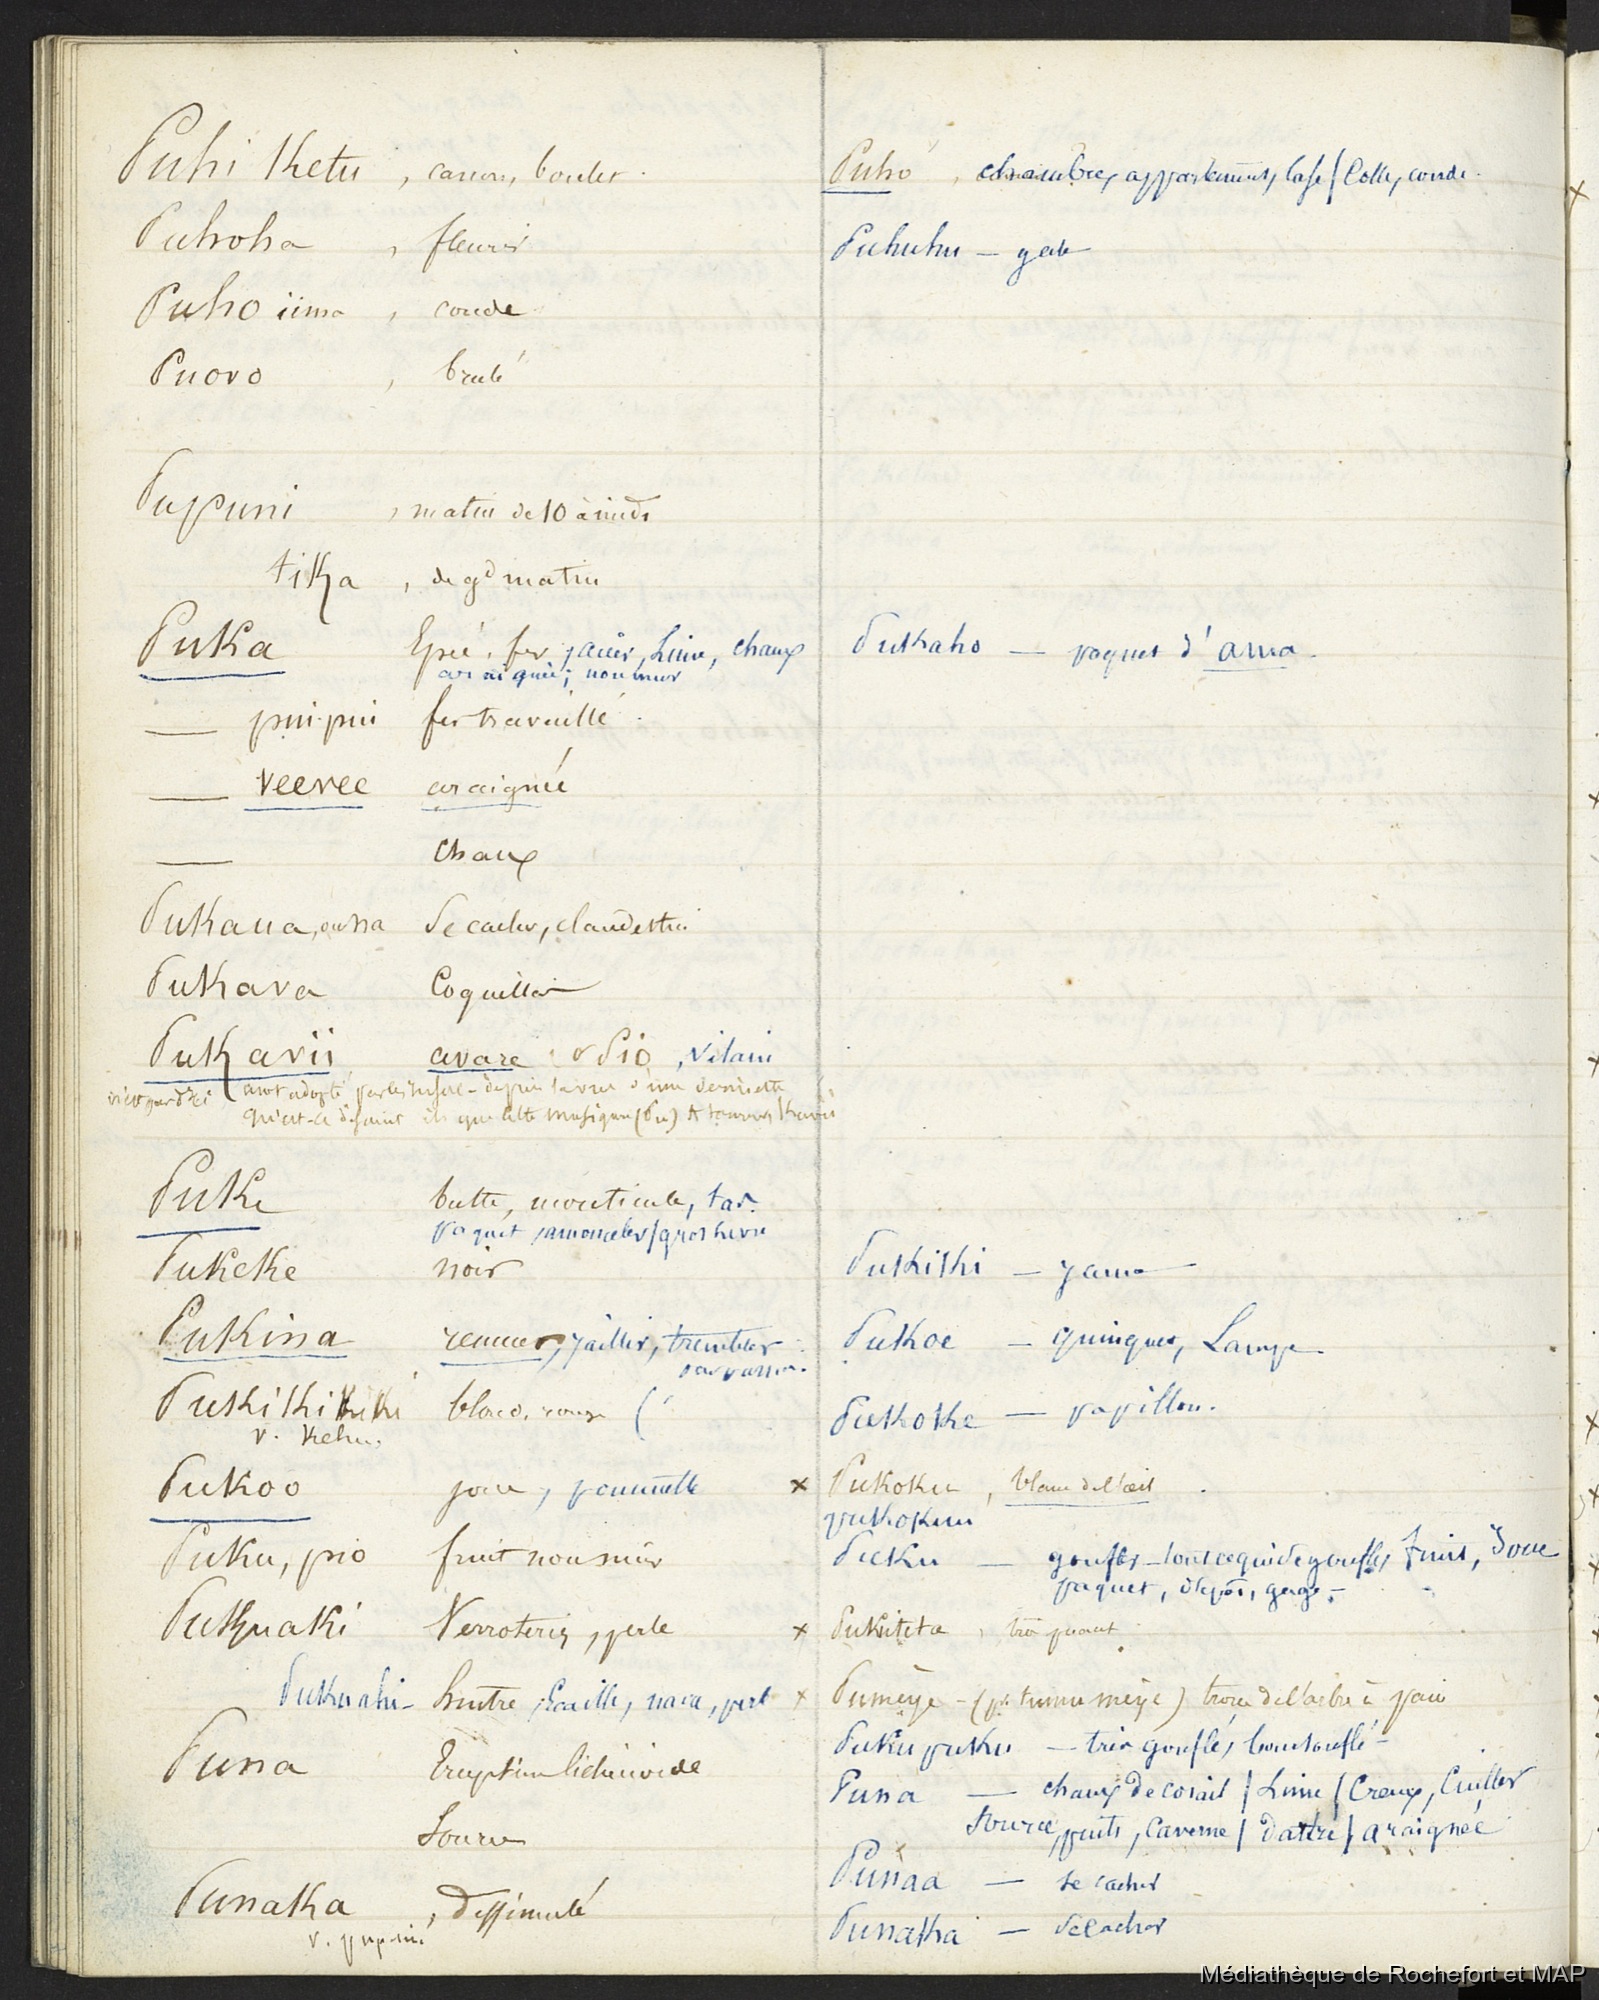 Puhi Ketu , canon, boulet.
Puhoha , fleurir
Puho iima , coude
Puovo , brulé
Pupuni , matin de 10 à midi
tika , de gd matin
Puka Epée, fer, acier, Lime, chaux
araignée; non mur
— pui-pui fer travaillé.
— veevee araignée
— chaux
Pukaua, ouna Se cacher, clandestin
Pukava Coquillar
Pukavii avare. v Pio, vilain
mot adopté par
qu'est-ce disaient ils que cette musique (Pu)
Puke butte, monticule, tas.
paquet, amonceler/gros livre
Pukeke noir
Pukina remuer, jaillir, trembler
Pukikikiki blond, rouge (
v. Kehu.
Pukoo joue, pommette
Puku, pio fruit non mûr
Pukuaki Verroterie, perle
Pukuahi - huitre, Ecaille, nacre, perle
Puna Eruption lichénoide
Source
Punaka , dissimulé
v. pupuni
Puho , chambre, appartement, case/Colle, coude.
Puhuhu — gale
Pukaho — paquet d'ama.
Pukiki — jaune
Pukoe — quinquet, Lampe
Pukoke — papillon.
x Pukoku , blanc de l'œil
pukokuu
Puku — gonfler - tout ce qui se gonfle, fruit, Joue
paquet, dépôt, gage -
x Pukiteta , très puant
x Pumeïe - (pr tumu meïe) tronc de l'arbre à pain
Pukupuku — très gonflé, boursouflé -
Puna — chaux de corail / Lime / Creux, Cuiller
Source, puits, caverne / dartre / araignée
Punaa — se cacher
Punaka — Se cacher
Médiathèque de Rochefort et MAP